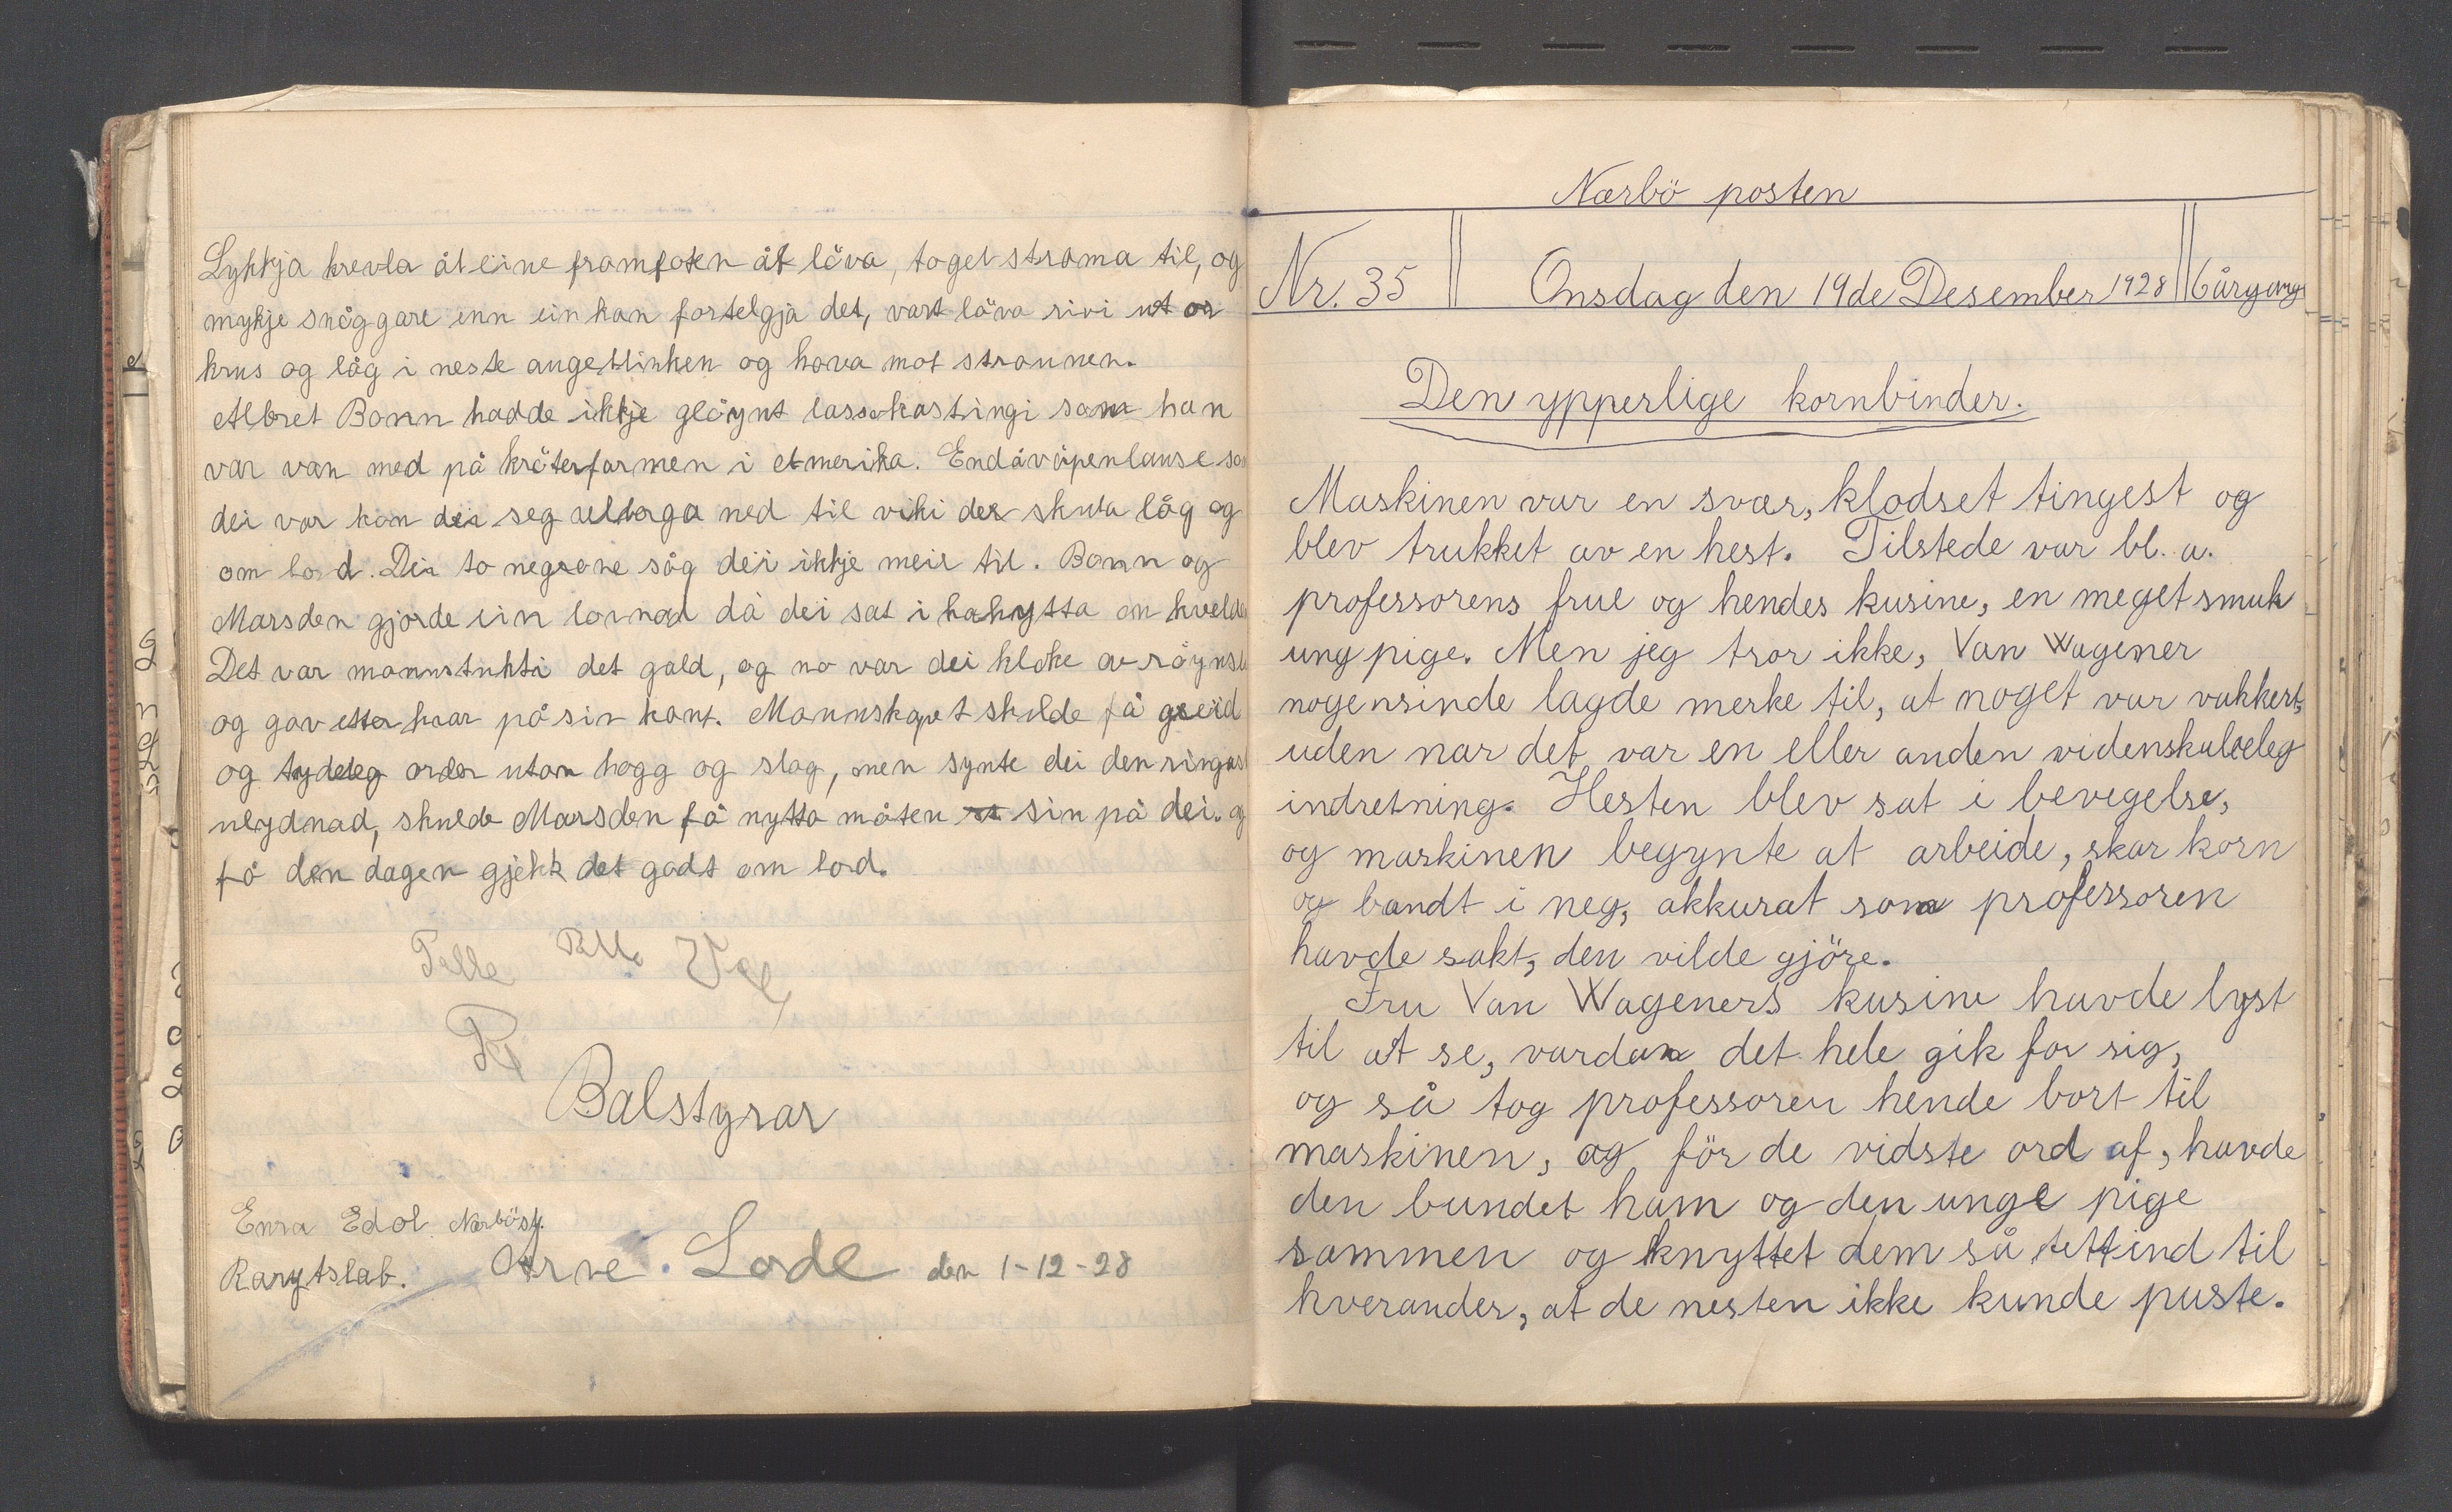 Lykkja krevla åt eine framfoten åt löva, toget strama til, og
mykje snöggare enn ein kan fortelgja det, vart löva rivi ut or
krus og låg i neste augeblinken og hava mot straumen.
Albret Bonn hadde ikkje glöymt lassokastingi som han
var van med på kröterfarmen i Amerika. Endå våpenlause so
dei var kom dei seg velberga ned til viki der skuta låg og
om bord. Dei to negrane såg dei ikkje meir til. Bonn og
Marsden gjorde ein lovnad då dei sat i kahytta om kvelde
Det var mannstukti det gald, og no var dei kloke av röynsl
og gav etter kvar på sin kant. Mannskapet skulde få greid
og tydeleg order utan hogg og slag, men synte dei den ringast
ulydnad, skulde Marsden få nytta måten sin på dei. og
frå den dagen gjekk det godt om bord.
Pelle
Balstyrar
Enra Edol. Nærbösj.
Rarytslab. Arne. Lode den 1-12-28
Nærbö posten
Nr. 35 Onsdag den 19de Desember 1928 6 årgang
Den ypperlige kornbinder.
Maskinen var en svær, klodset tingest og
blev trukket av en hest. Tilstede var bl. a.
professorens frue og hendes kusine, en meget smuk
ung pige. Men jeg tror ikke, Van Wagener
nogensinde lagde merke til, at noget var vakkert,
uden nar det var en eller anden videnskabeleg
indretning. Hesten blev sat i bevegelse,
og maskinen begynte at arbeide, skar korn
og bandt i neg, akkurat som professoren
havde sakt, den vilde gjöre.
Fru Van Wageners kusine havde lyst
til at se, vordan det hele gik for sig,
og så tog professoren hende bort til
maskinen, og för de vidste ord af, havde
den bundet ham og den unge pige
sammen og knyttet dem så tett ind til
hverander, at de nesten ikke kunde puste.